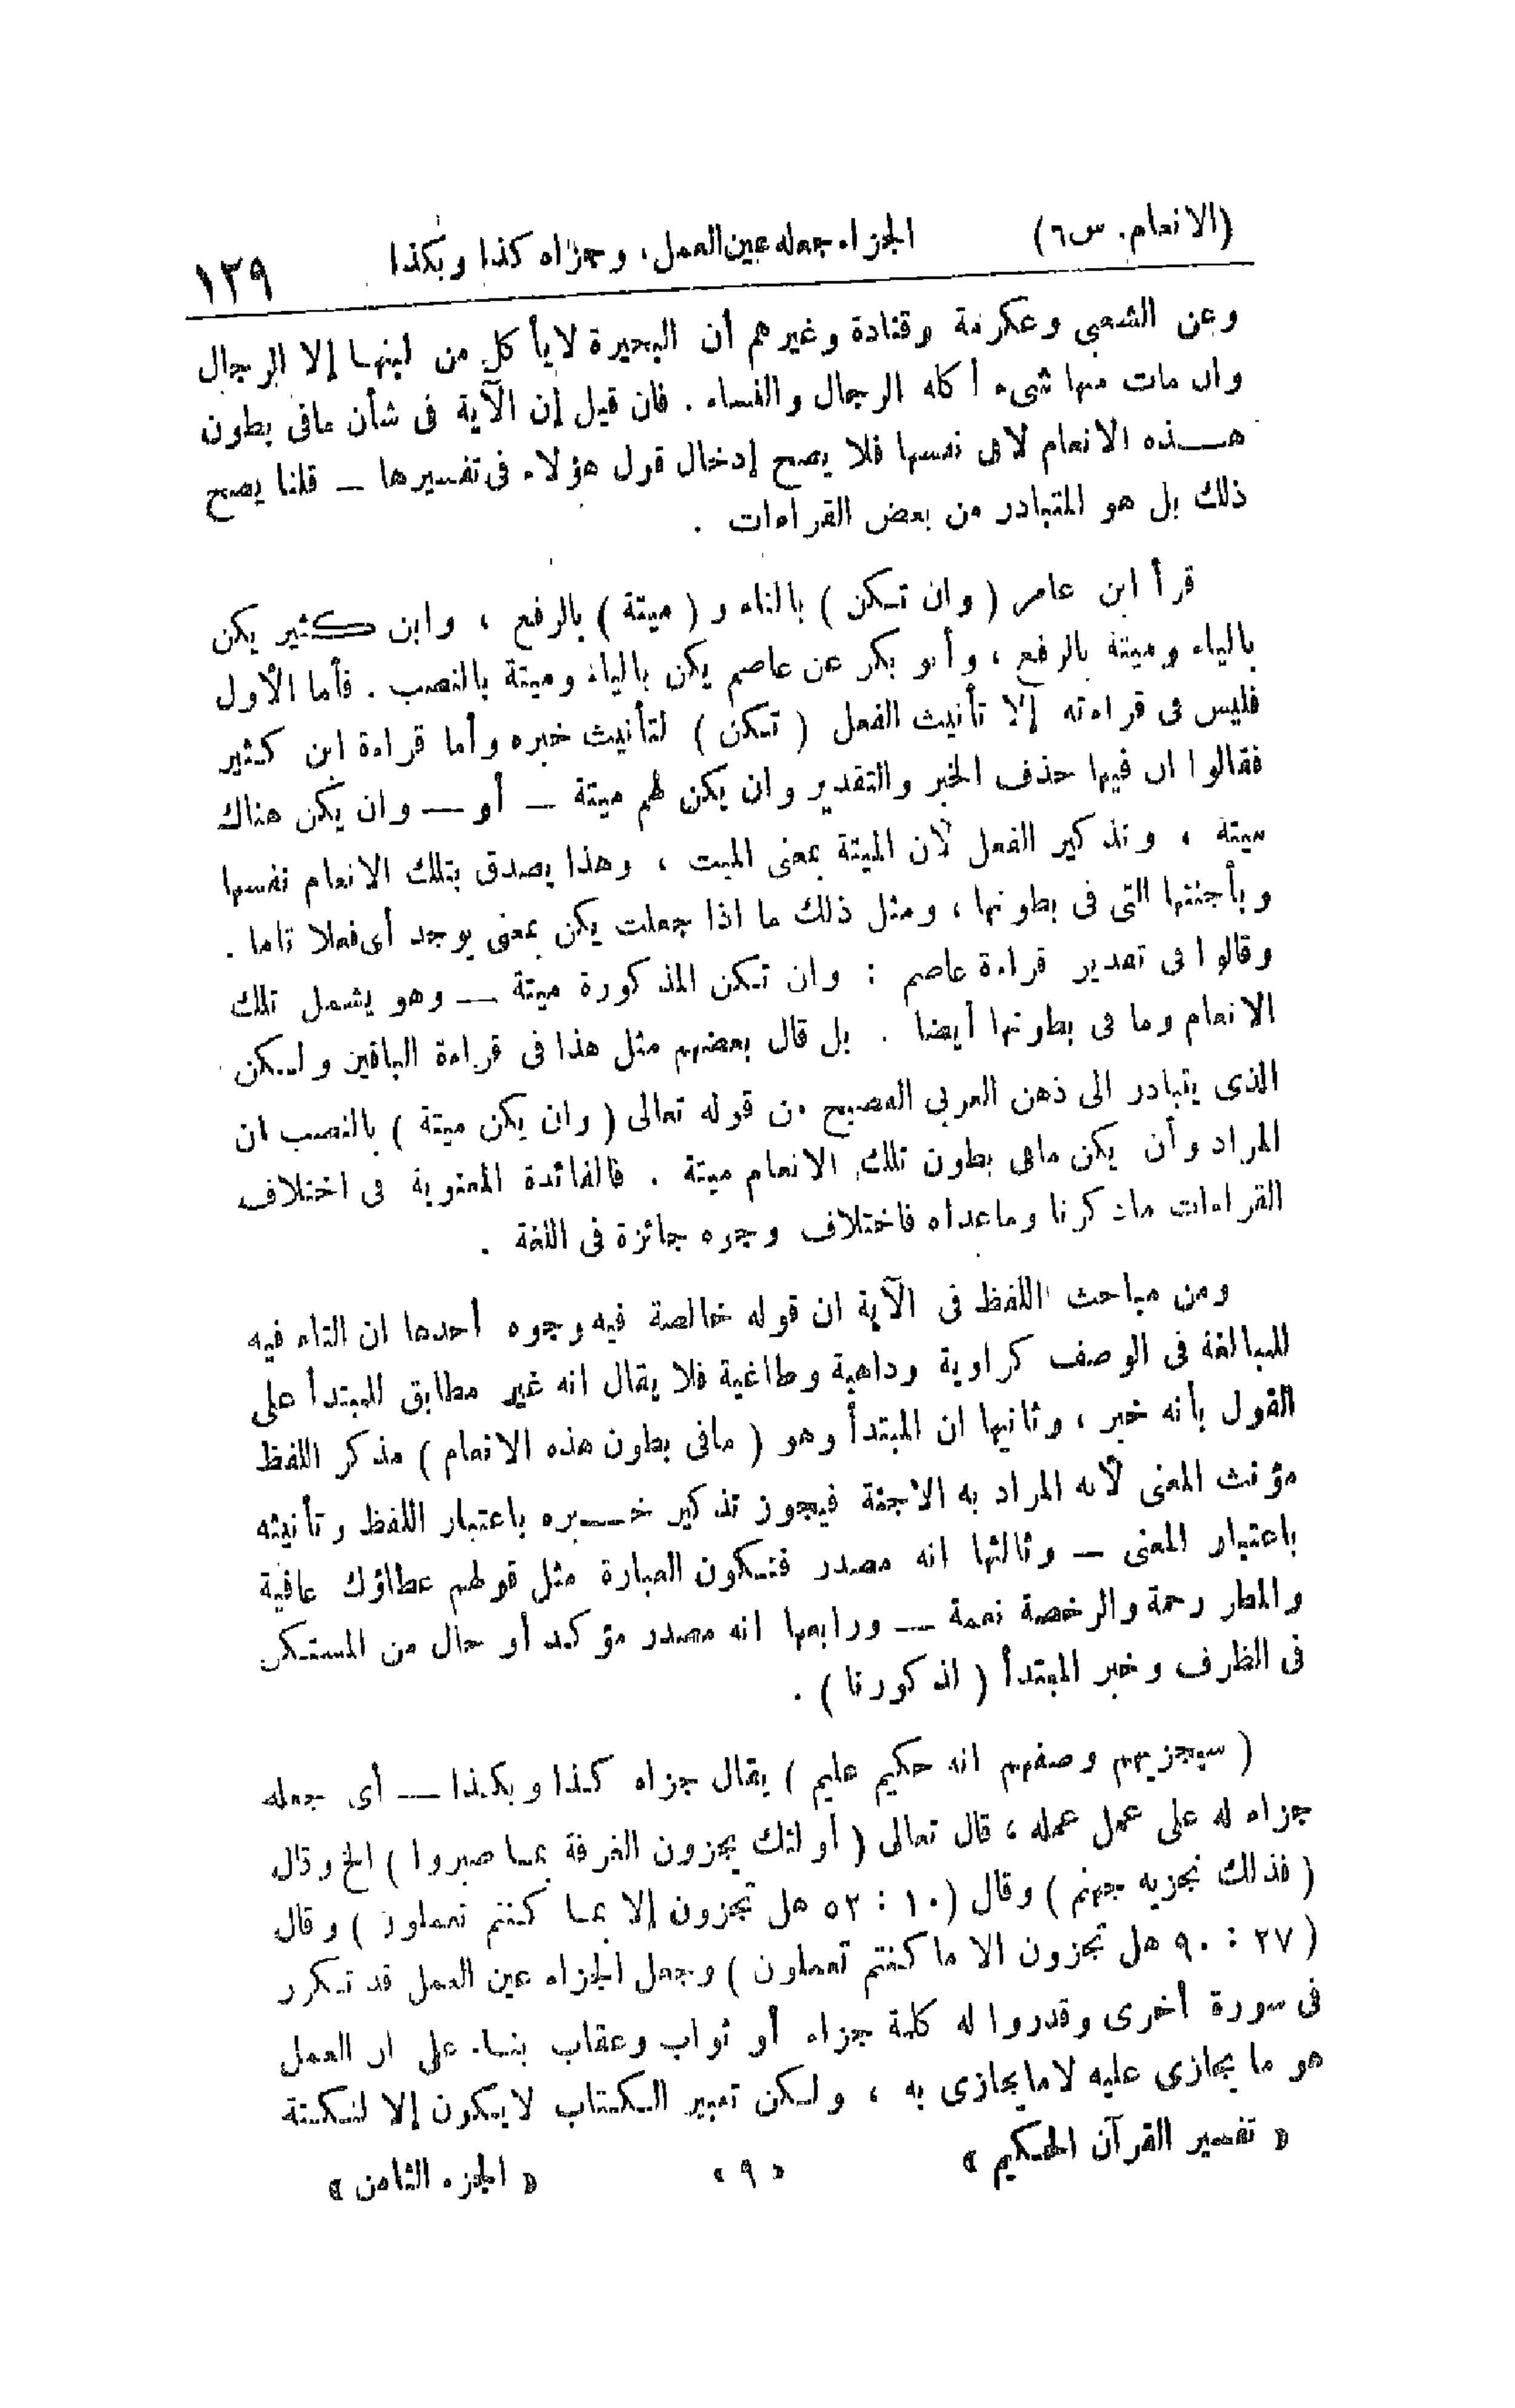 (الانعام. س٦) الجزاء جعله عين العمل، وجزاه كذا وبكذا ١٢٩
وعن الشعبى وعكرمة وقتادة وغيرهم أن البحيرة لايأكل من لبنها إلا الرجال
وان مات منها شىء أكله الرجال والنساء . فان قيل إن الآية فى شأن مافى بطون
هـذه الانعام لافى نفسها فلا يصح إدخال قول هؤلاء فى تفسيرها — قلنا يصح
ذلك بل هو المتبادر من بعض القراءات .
قرأ ابن عامر ( وان تكن ) بالتاء و ( ميتة ) بالرفع ، وابن كثير يكن
بالياء وميتة بالرفع ، وأبو بكر عن عاصم يكن بالياء وميتة بالنصب . فأما الأول
فليس فى قراءته إلا تأنيث الفعل ( تكن ) لتأنيث خبره وأما قراءة ابن كثير
فقالوا ان فيها حذف الخبر والتقدير وان يكن لهم ميتة — أو — وان يكن هناك
ميتة ، وتذكير الفعل لأن الميتة بمعنى الميت ، وهذا يصدق بتلك الانعام نفسها
وبأجنتها التى فى بطونها ، ومثل ذلك ما اذا جعلت يكن بمعنى يوجد أى فعلا تاما .
وقالوا فى تقدير قراءة عاصم : وان تكن المذكورة ميتة — وهو يشمل تلك
الانعام وما فى بطونها أيضا . بل قال بعضهم مثل هذا فى قراءة الباقين ولكن
الذى يتبادر الى ذهن العربي الفصيح من قوله تعالى ( وان يكن ميتة ) بالنصب ان
المراد وأن يكن مافى بطون تلك الانعام ميتة . فالفائدة المعنوية فى اختلاف
القراءات ماذكرنا وماعداه فاختلاف وجوه جائزة فى اللغة .
ومن مباحث اللفظ فى الآية ان قوله خالصة فيه وجوه أحدها ان التاء فيه
للمبالغة فى الوصف كراوية وداهية وطاغية فلا يقال انه غير مطابق للمبتدأ على
القول بأنه خبر ، وثانيها ان المبتدأ وهو ( مافى بطون هذه الانعام ) مذكر اللفظ
مؤنث المعنى لأنه المراد به الاجنة فيجوز تذكير خـبره باعتبار اللفظ وتأنيثه
باعتبار المعنى — وثالثها انه مصدر فتكون العبارة مثل قولهم عطاؤك عافية
والمطر رحمة والرخصة نعمة — ورابعها انه مصدر مؤكد أو حال من المستكن
فى الظرف وخبر المبتدأ ( لذكورنا ) .
( سيجزيهم وصفهم انه حكيم عليم ) يقال جزاه كذا وبكذا — أى جعله
جزاء له على عمل عمله ، قال تعالى ( أولئك يجزون الغرفة بما صبروا ) الخ وقال
( فذلك نجزيه جهنم ) وقال (١٠ : ٥٢ هل تجزون إلا بما كنتم تعملون ) وقال
( ٢٧ : ٩٠ هل تجزون الا ما كنتم تعملون ) وجعل الجزاء عين العمل قد تكرر
فى سورة أخرى وقدروا له كلمة جزاء أو ثواب وعقاب بناء على ان العمل
هو ما يجازى عليه لامايجازى به ، ولكن تعبير الكتاب لايكون إلا لنكتة
« تفسير القرآن الحكيم » « ٩ » « الجزء الثامن »